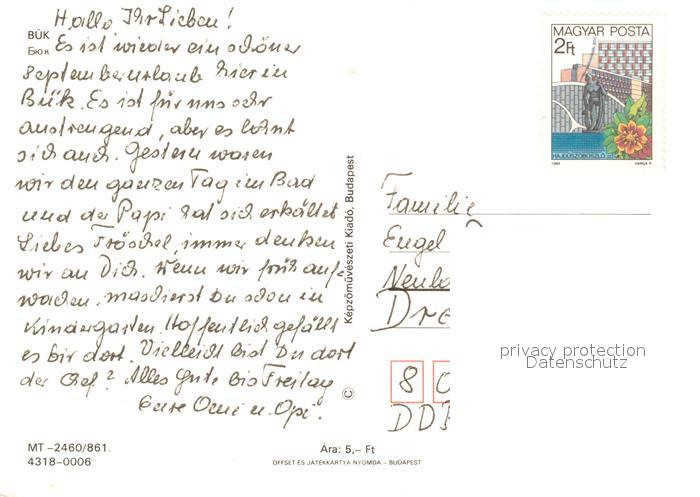 Hallo Ihr Lieben!
BÜK
Бюк
Es ist wieder ein schöner
Septemberurlaub hier in
Bük. Es ist für uns sehr
anstrengend, aber es lohnt
sich auch. Gestern waren
wir den ganzen Tag im Bad
und der Papi hat sich erkältet
Liebes Fröschel, immer denken
wir an Dich. Wenn wir früh auf-
wachen, marschierst Du schon in
Kindergarten. Hoffentlich gefällt
es Dir dort. Vielleicht bist Du dort
der Chef? Alles Gute bis Freitag
Eure Omi u. Opi.
MT.-2460/861.
4318-0006
Ára: 5,- Ft
OFFSET ÉS JÁTÉKKÁRTYA NYOMDA - BUDAPEST
Képzőművészeti Kiadó, Budapest
©
MAGYAR POSTA
2Ft
HAJDÚSZOBOSZLÓ
1983 VARGA P.
Familie
Engel
Dre
8
DDR
privacy protection
Datenschutz